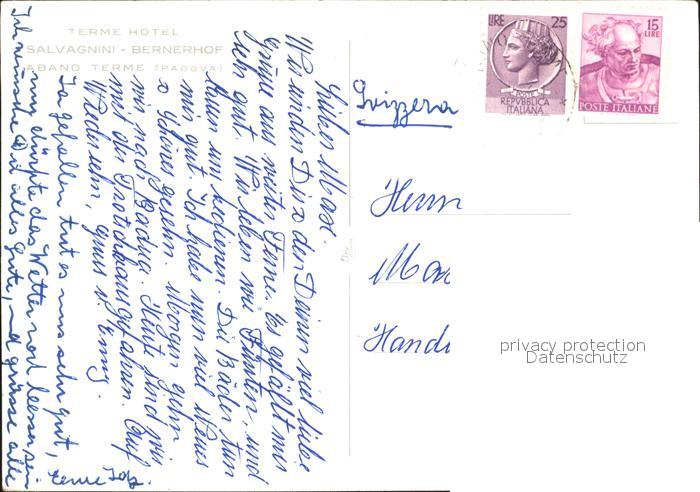 TERME HOTEL
SALVAGNINI - BERNERHOF
ABANO TERME (PADOVA)
LIRE 25
POSTE
REPVBBLICA
ITALIANA
15
LIRE
POSTE ITALIANE
Svizzera
Herrn
Max
privacy protection
Datenschutz
Lieber Max.
Wir senden Dir & den Deinen viel liebe
Grüsse aus weiter Ferne. Es gefällt mir
sehr gut. Wir leben wie Fürsten, und
lassen uns bedienen. Die Bäder tun
mir gut. Ich habe nun viel Neues
& Schönes gesehn. Morgen gehn
wir nach Padua. Heute sind wir
mit der gefahren. Auf
Wiedersehn, gruss v. Emmy.
Ja gefallen tut es uns sehr gut,
nur dürfte das Wetter noch besser sein
Ich wünsche Dir alles Gute, und grüsse alle